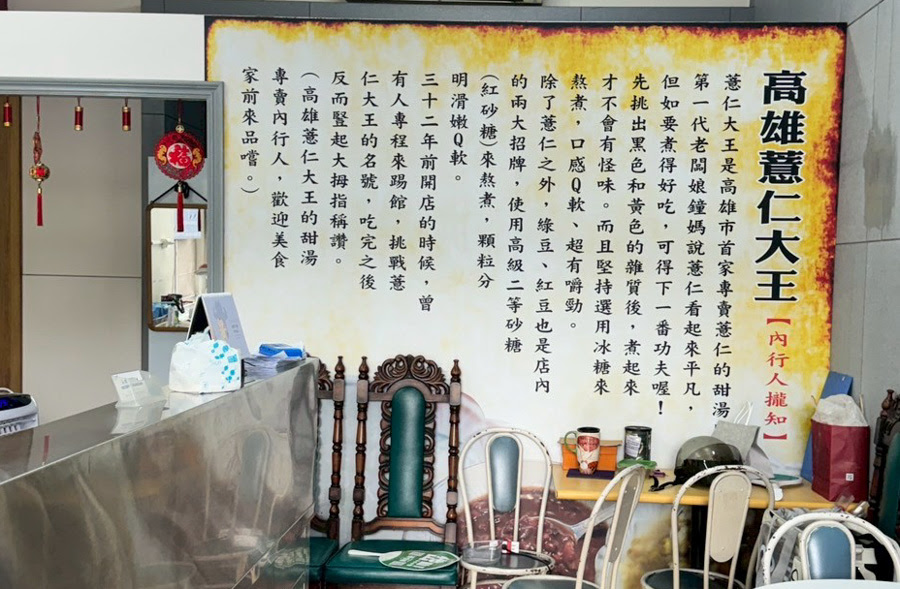 高雄薏仁大王
【內行人攏知】
薏仁大王是高雄市首家專賣薏仁的甜湯
第一代老闆娘鐘媽說薏仁看起來平凡，
但如要煮得好吃，可得下一番功夫喔！
先挑出黑色和黃色的雜質後，煮起來
才不會有怪味。而且堅持選用冰糖來
熬煮，口感Q軟、超有嚼勁。
除了薏仁之外，綠豆、紅豆也是店內
的兩大招牌，使用高級二等砂糖
（紅砂糖）來熬煮，顆粒分
明滑嫩Q軟。
三十二年前開店的時候，曾
有人專程來踢館，挑戰薏
仁大王的名號，吃完之後
反而豎起大拇指稱讚。
（高雄薏仁大王的甜湯
專賣內行人，歡迎美食
家前來品嚐。）
福